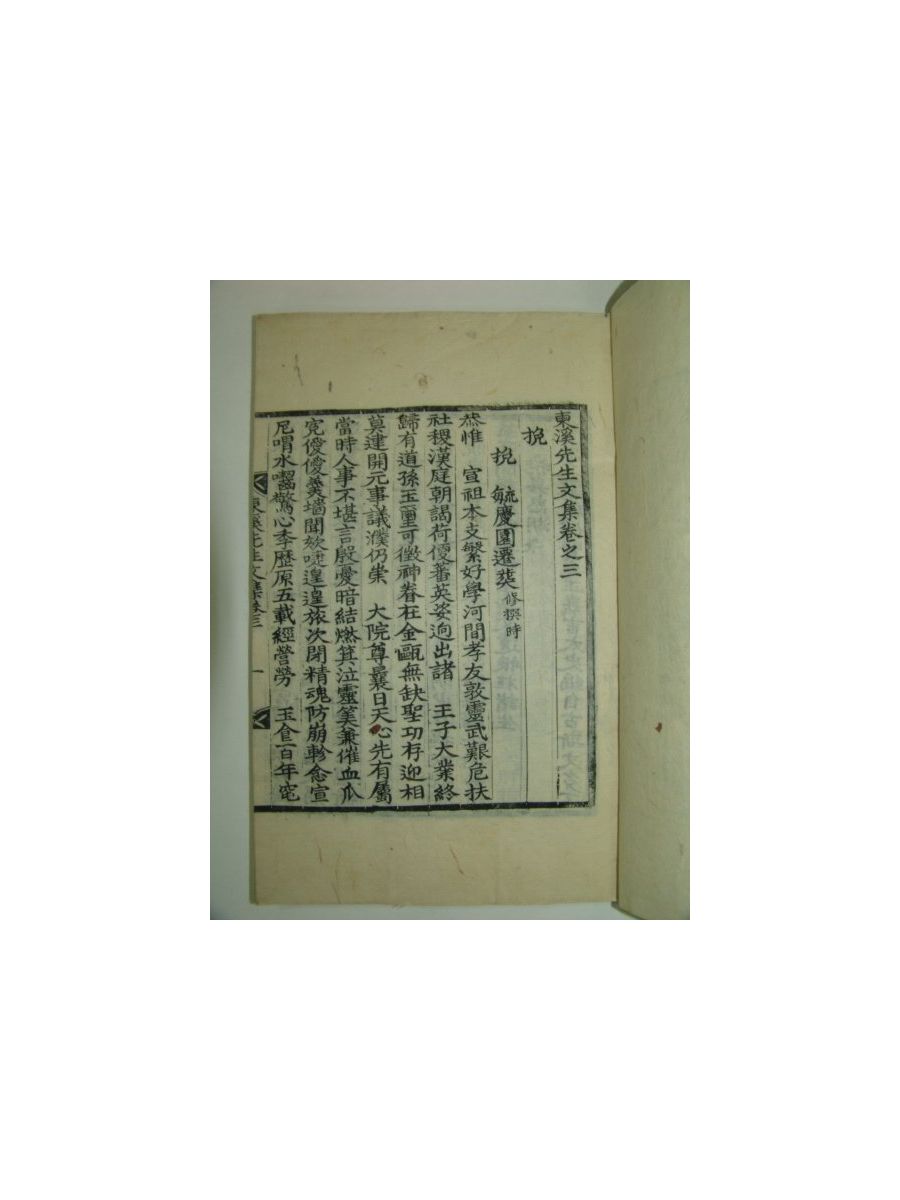 東溪先生文集卷之三
挽
挽 毓慶園遷葬 修撰時
恭惟 宣祖本支繁好學河間孝友敦靈武艱危扶
社稷漢庭朝謁荷優蕃英姿逈出諸 王子大業終
歸有道孫玉璽可徵神眷在金甌無缺聖功存迎相
莫建開元事議濮仍崇 大院尊曩日天心先有屬
當時人事不堪言殷憂暗結燃箕泣靈笑兼催血瓜
寃僾僾羹墻聞欬唾遑遑旅次閉精魂防崩軫念宣
尼喟水囓驚心季歷原五載經營勞 玉食百年窀
東溪先生文集卷三 一